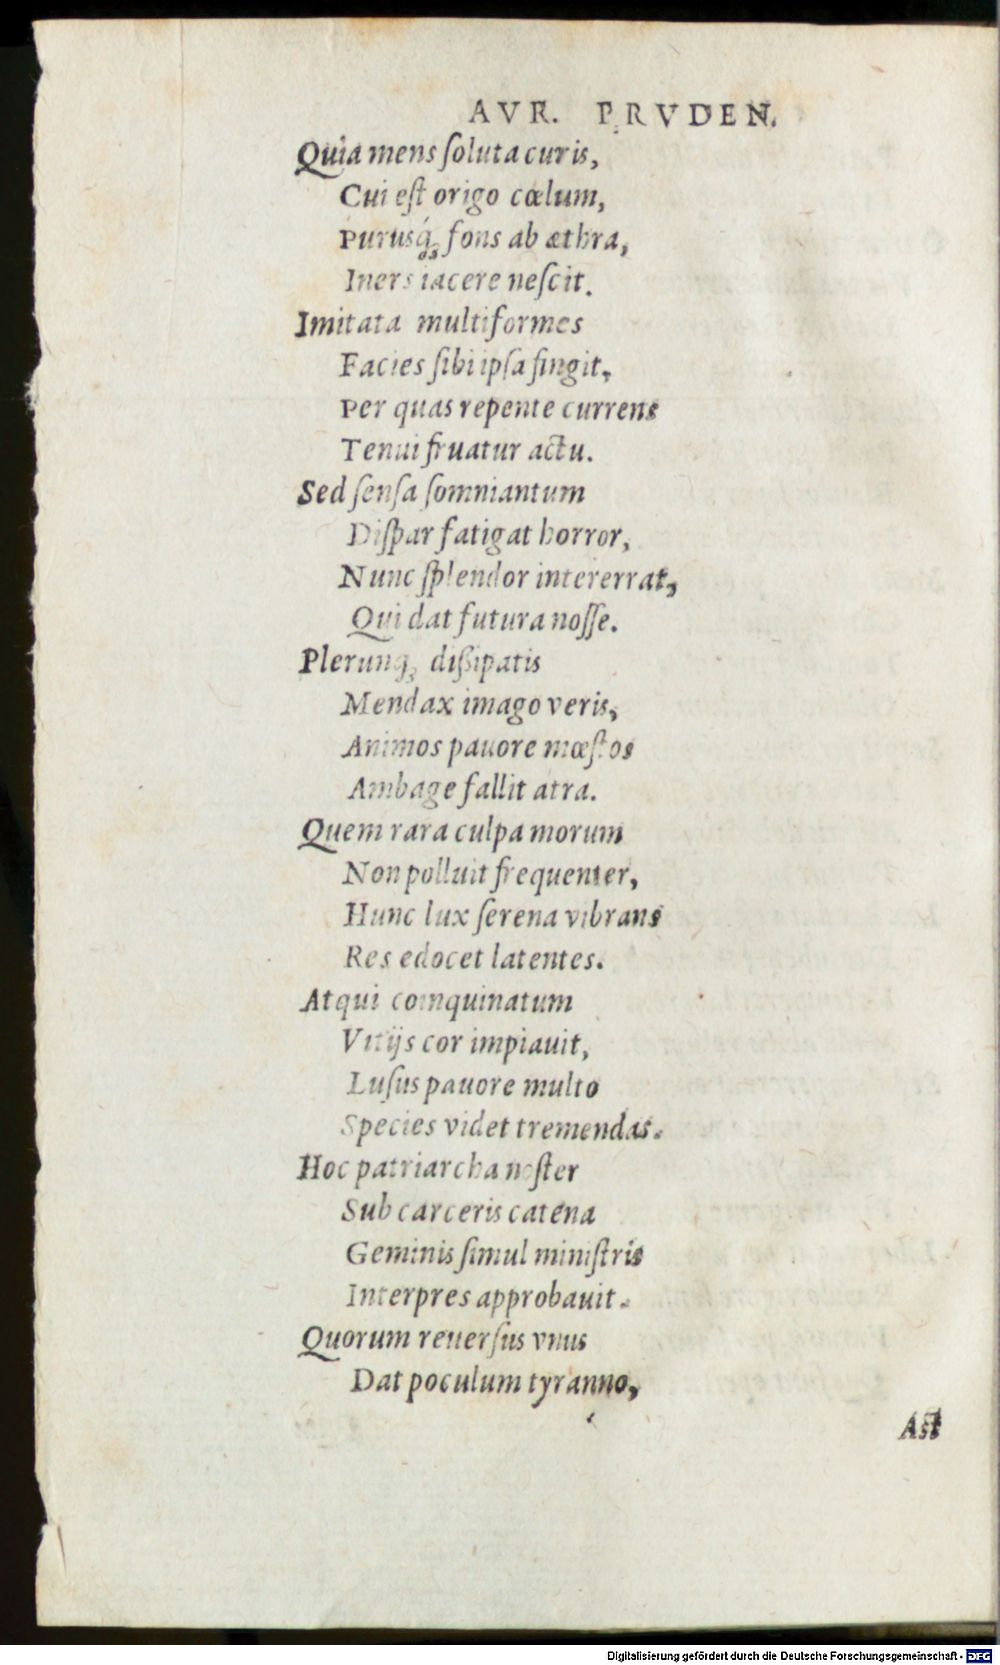 AVR. PRVDEN.
Quia mens ſoluta curis,
Cui eſt origo cœlum,
Purusq́; fons ab æthra,
Iners iacere neſcit.
Imitata multiformes
Facies ſibi ipſa fingit,
Per quas repente currens
Tenui fruatur actu.
Sed ſenſa ſomniantum
Diſpar fatigat horror,
Nunc ſplendor intererrat,
Qui dat futura noſſe.
Plerunq; dißipatis
Mendax imago veris,
Animos pauore mœſtos
Ambage fallit atra.
Quem rara culpa morum
Non polluit frequenter,
Hunc lux ſerena vibrans
Res edocet latentes.
Atqui coinquinatum
Vitijs cor impiauit,
Luſus pauore multo
Species videt tremendas.
Hoc patriarcha noſter
Sub carceris catena
Geminis ſimul miniſtris
Interpres approbauit.
Quorum reuerſus vnus
Dat poculum tyranno,
Aſt
Digitalisierung gefördert durch die Deutsche Forschungsgemeinschaft - DFG